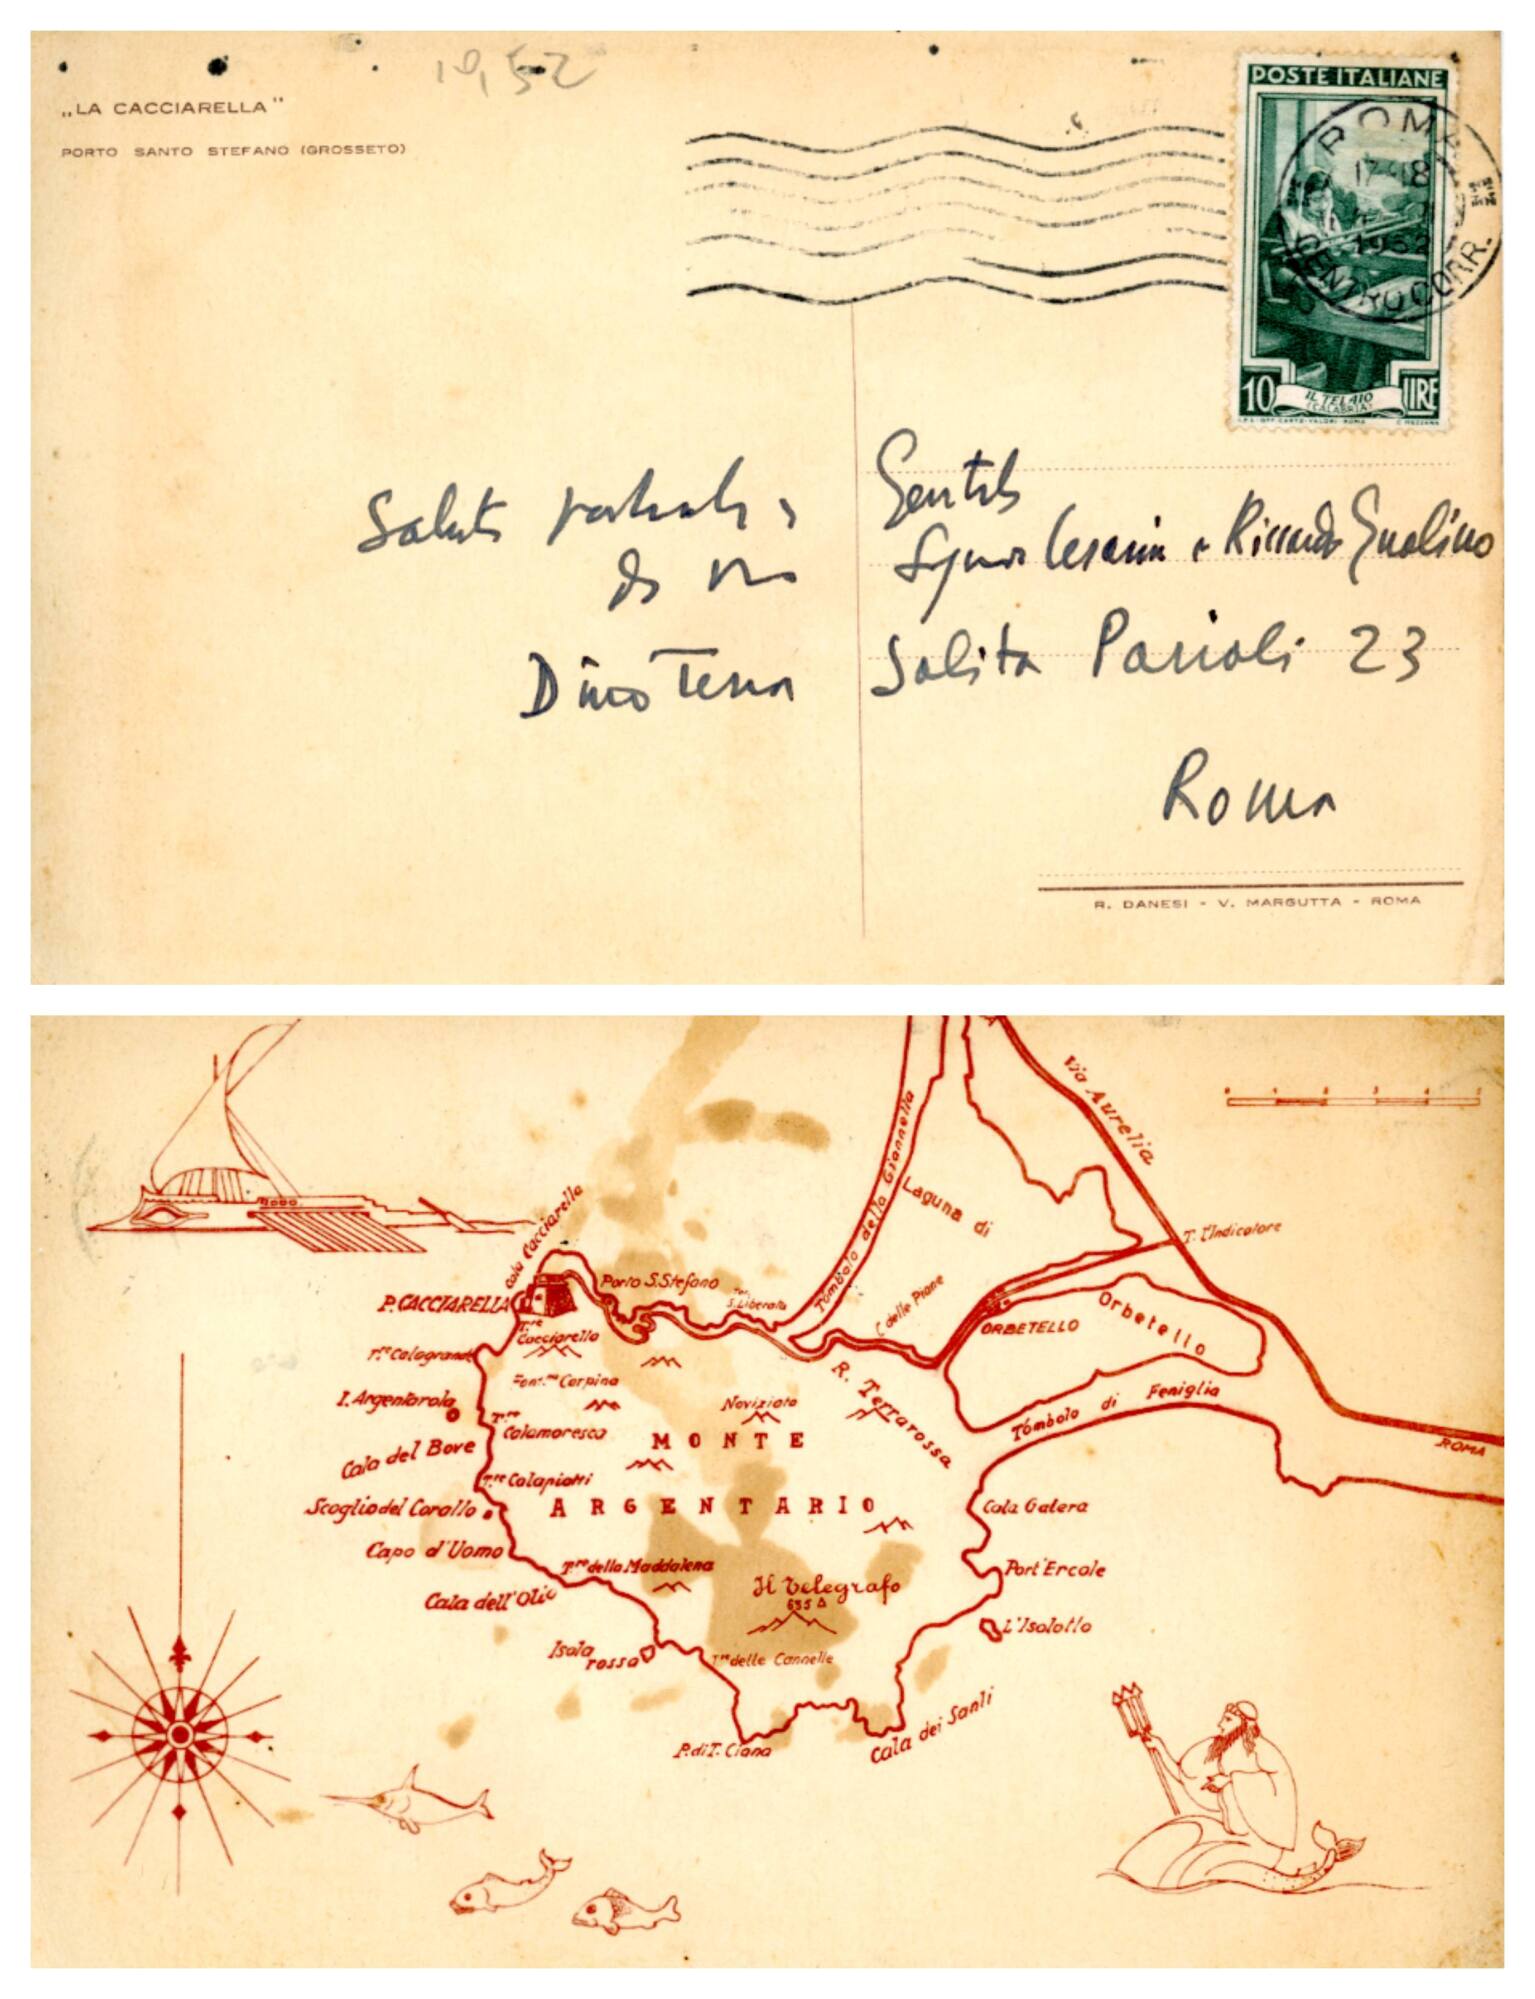 19,52
„LA CACCIARELLA"
PORTO SANTO STEFANO (GROSSETO)
POSTE ITALIANE
ROMA
1952
CENTRO CORR.
10 LIRE
IL TELAIO
(CALABRIA)
Saluti
Dino Terra
Gentili
Signori Cesarina e Riccardo Gualino
Salita Parioli 23
Roma
R. DANESI - V. MARGUTTA - ROMA
Via Aurelia
Tombolo della Giannella
Laguna di
Cala Cacciarella
T. l'Indicatore
Porto S. Stefano
P. CACCIARELLA
S. Liberata
C. delle Piane
Orbetello
ORBETELLO
T.re Cacciarella
T.re Calagrande
Font.na Carpina
R. Terrarossa
Tómbolo di Feniglia
I. Argentarola
Noviziato
T.re Calamoresca
MONTE
ROMA
Cala del Bove
T.re Calapiatti
Scoglio del Corallo
ARGENTARIO
Cala Galera
Capo d'Uomo
T.re della Maddalena
Port'Ercole
Il Telegrafo
635
Cala dell'Olio
L'Isolotto
Isola rossa
T.re delle Cannelle
Cala dei Santi
P. di T. Ciana